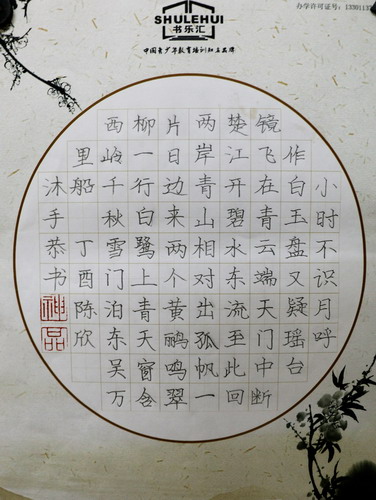 办学许可证号:1330113
SHULEHUI
书乐汇
中国青少年教育培训知名品牌
小时不识月呼
作白玉盘又疑瑶台
镜飞在青云端天门中断
楚江开碧水东流至此回
两岸青山相对出孤帆一
片日边来两个黄鹂鸣翠
柳一行白鹭上青天窗含
西岭千秋雪门泊东吴万
里船 丁酉陈欣
沐手恭书
神品